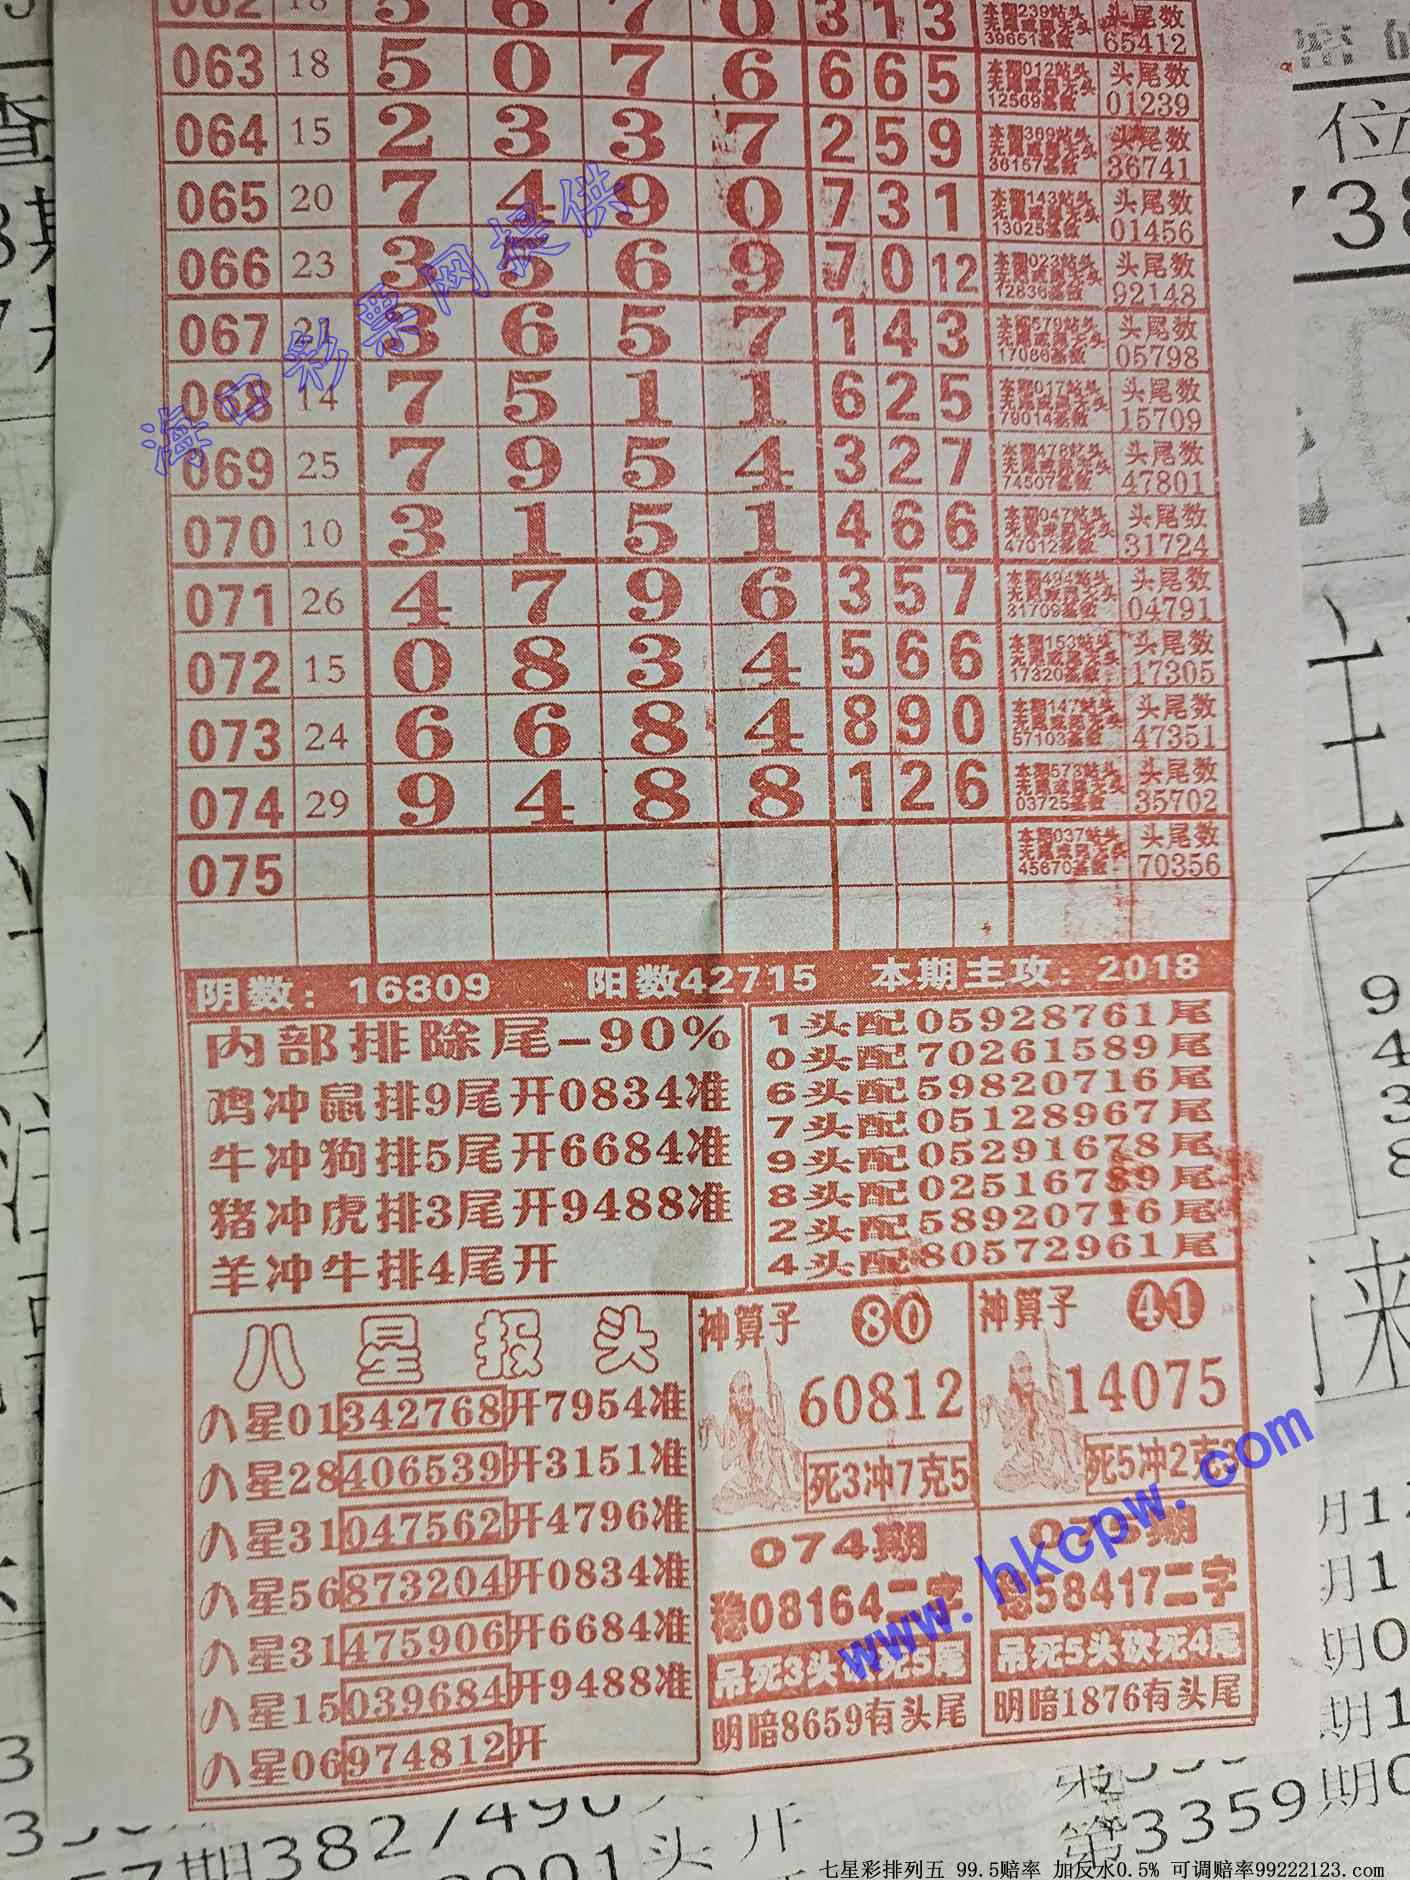 062 18 5 6 7 0 3 1 3 本期239站头 无尾或尾无头 39651基数 头尾数 65412
063 18 5 0 7 6 6 6 5 本期012站头 无尾或尾无头 12569基数 头尾数 01239
064 15 2 3 3 7 2 5 9 本期369站头 无尾或尾无头 36157基数 头尾数 36741
065 20 7 4 9 0 7 3 1 本期143站头 无尾或尾无头 13025基数 头尾数 01456
066 23 3 5 6 9 7 0 12 本期023站头 无尾或尾无头 72836基数 头尾数 92148
067 21 3 6 5 7 1 4 3 本期579站头 无尾或尾无头 17086基数 头尾数 05798
068 14 7 5 1 1 6 2 5 本期017站头 无尾或尾无头 79014基数 头尾数 15709
069 25 7 9 5 4 3 2 7 本期478站头 无尾或尾无头 74507基数 头尾数 47801
070 10 3 1 5 1 4 6 6 本期047站头 无尾或尾无头 47012基数 头尾数 31724
071 26 4 7 9 6 3 5 7 本期494站头 无尾或尾无头 31709基数 头尾数 04791
072 15 0 8 3 4 5 6 6 本期153站头 无尾或尾无头 17320基数 头尾数 17305
073 24 6 6 8 4 8 9 0 本期147站头 无尾或尾无头 57103基数 头尾数 47351
074 29 9 4 8 8 1 2 6 本期573站头 无尾或尾无头 03725基数 头尾数 35702
075 本期037站头 无尾或尾无头 45670基数 头尾数 70356
海口彩票网提供
阴数：16809 阳数42715 本期主攻：2018
内部排除尾-90%
鸡冲鼠排9尾开0834准
牛冲狗排5尾开6684准
猪冲虎排3尾开9488准
羊冲牛排4尾开
1头配05928761尾
0头配70261589尾
6头配59820716尾
7头配05128967尾
9头配05291678尾
8头配02516789尾
2头配58920716尾
4头配80572961尾
八星报头
八星01342768开7954准
八星28406539开3151准
八星31047562开4796准
八星56873204开0834准
八星31475906开6684准
八星15039684开9488准
八星06974812开
神算子 80
60812
死3冲7克5
074期
稳08164二字
吊死3头砍死5尾
明暗8659有头尾
神算子 41
14075
死5冲2克3
075期
稳58417二字
吊死5头砍死4尾
明暗1876有头尾
www.hkcpw.com
第3359期0
七星彩排列五 99.5赔率 加反水0.5% 可调赔率99222123.com